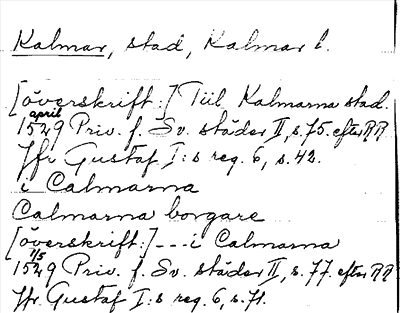 Kalmar, stad, Kalmar l.
[överskrift:] Tiil Kalmarna stad.
april
1529 Priv. f. Sv. städer II, s. 75. efter RR
Jfr Gustaf I:s reg. 6, s. 42.
i Calmarna
Calmarna borgare
[överskrift:] --- i Calmarna
1/5
1529 Priv. f. Sv. städer II, s. 77. efter RR
Jfr. Gustaf I:s reg. 6, s. 71.